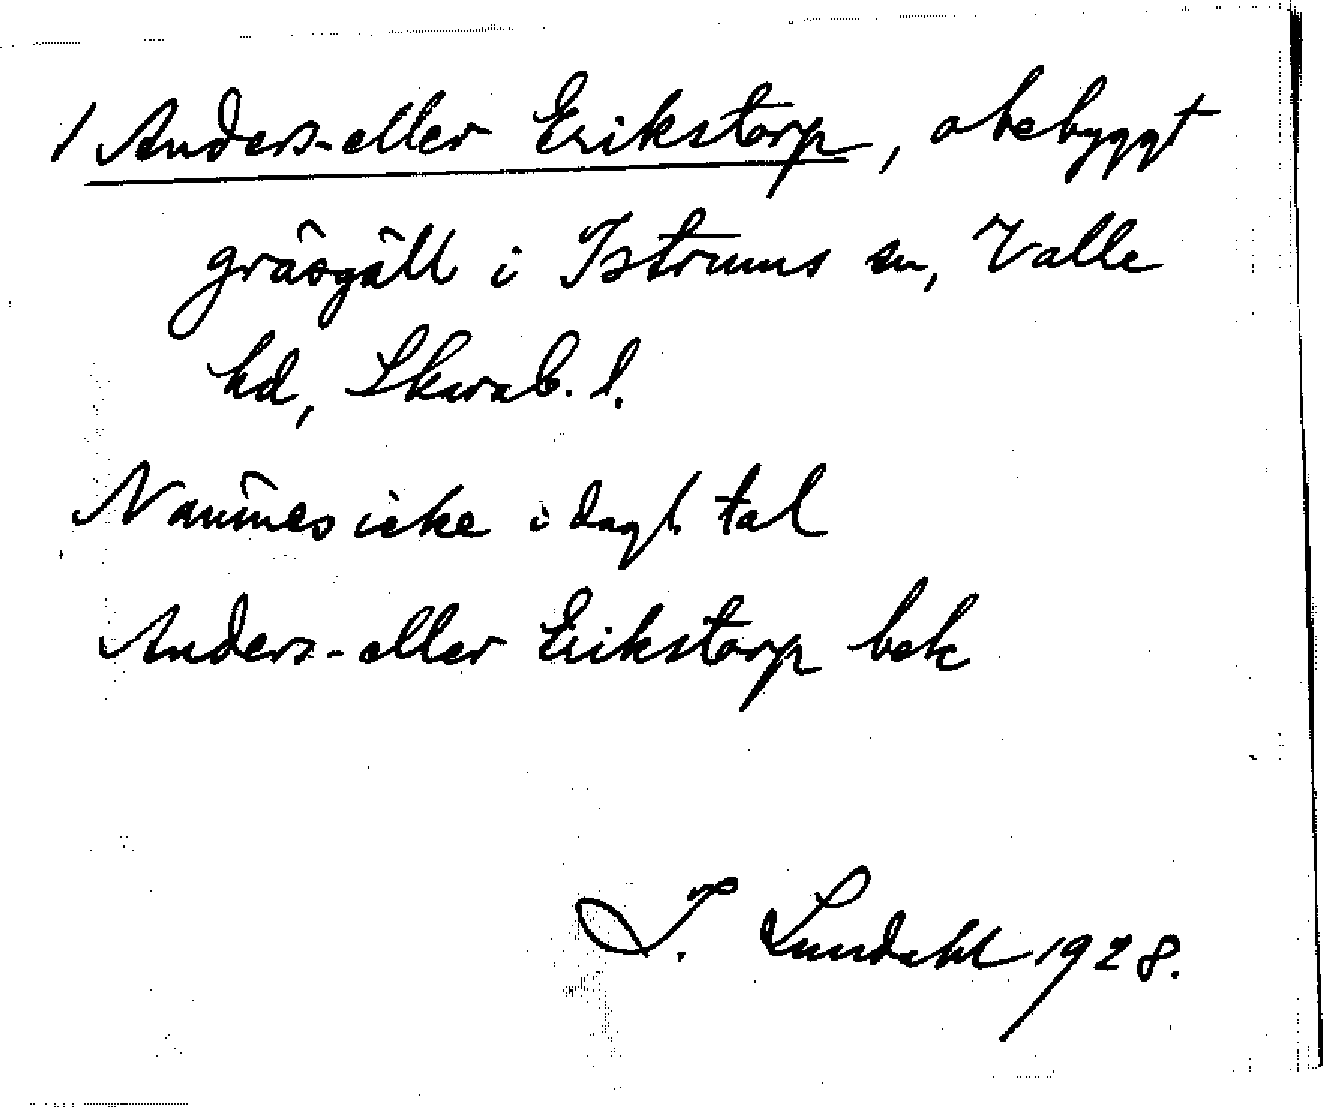 / Anders- eller Erikstorp, obebyggt
gräsgäll i Istrums sn, Valle
hd, Skarab. l.
Nämnes icke i dagl. tal
Anders- eller Erikstorp bek
I. Lundahl 1928.